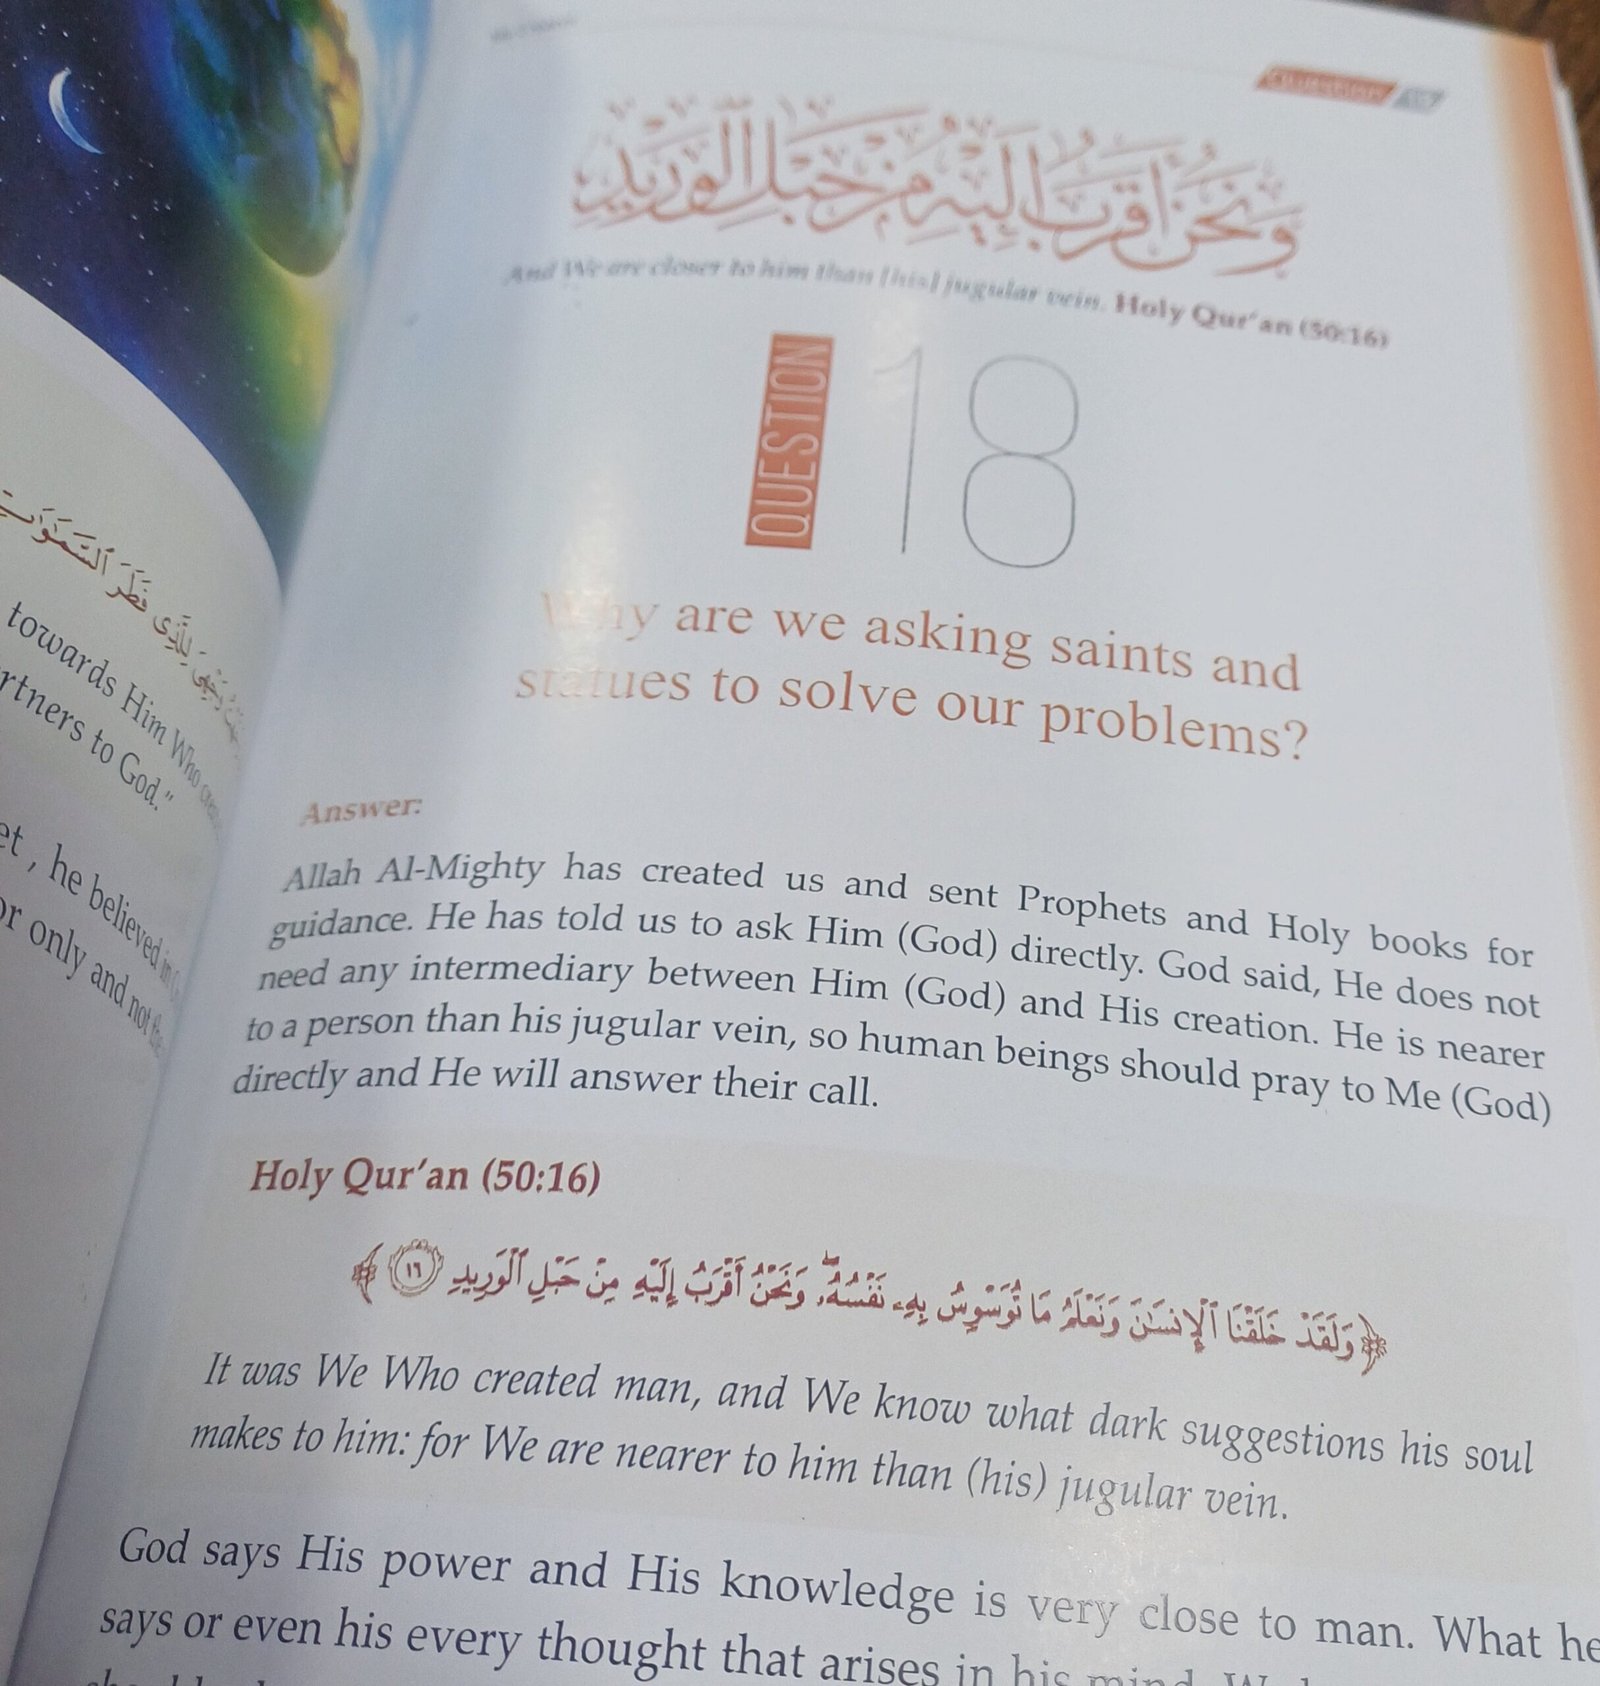 ٱلسَّمَٰوَٰتِ
فَطَرَ
لِلَّذِى
وَجْهِىَ
towards Him Who
rtners to God."
et , he believed in
or only and not the
QUESTION
وَنَحْنُ أَقْرَبُ إِلَيْهِ مِنْ حَبْلِ الْوَرِيدِ
And We are closer to him than [his] jugular vein. Holy Qur'an (50:16)
QUESTION 18
Why are we asking saints and
statues to solve our problems?
Answer:
Allah Al-Mighty has created us and sent Prophets and Holy books for
guidance. He has told us to ask Him (God) directly. God said, He does not
need any intermediary between Him (God) and His creation. He is nearer
to a person than his jugular vein, so human beings should pray to Me (God)
directly and He will answer their call.
Holy Qur'an (50:16)
﴿وَلَقَدْ خَلَقْنَا ٱلْإِنسَٰنَ وَنَعْلَمُ مَا تُوَسْوِسُ بِهِۦ نَفْسُهُۥۖ وَنَحْنُ أَقْرَبُ إِلَيْهِ مِنْ حَبْلِ ٱلْوَرِيدِ ١٦﴾
It was We Who created man, and We know what dark suggestions his soul
makes to him: for We are nearer to him than (his) jugular vein.
God says His power and His knowledge is very close to man. What he
says or even his every thought that arises in his mind.